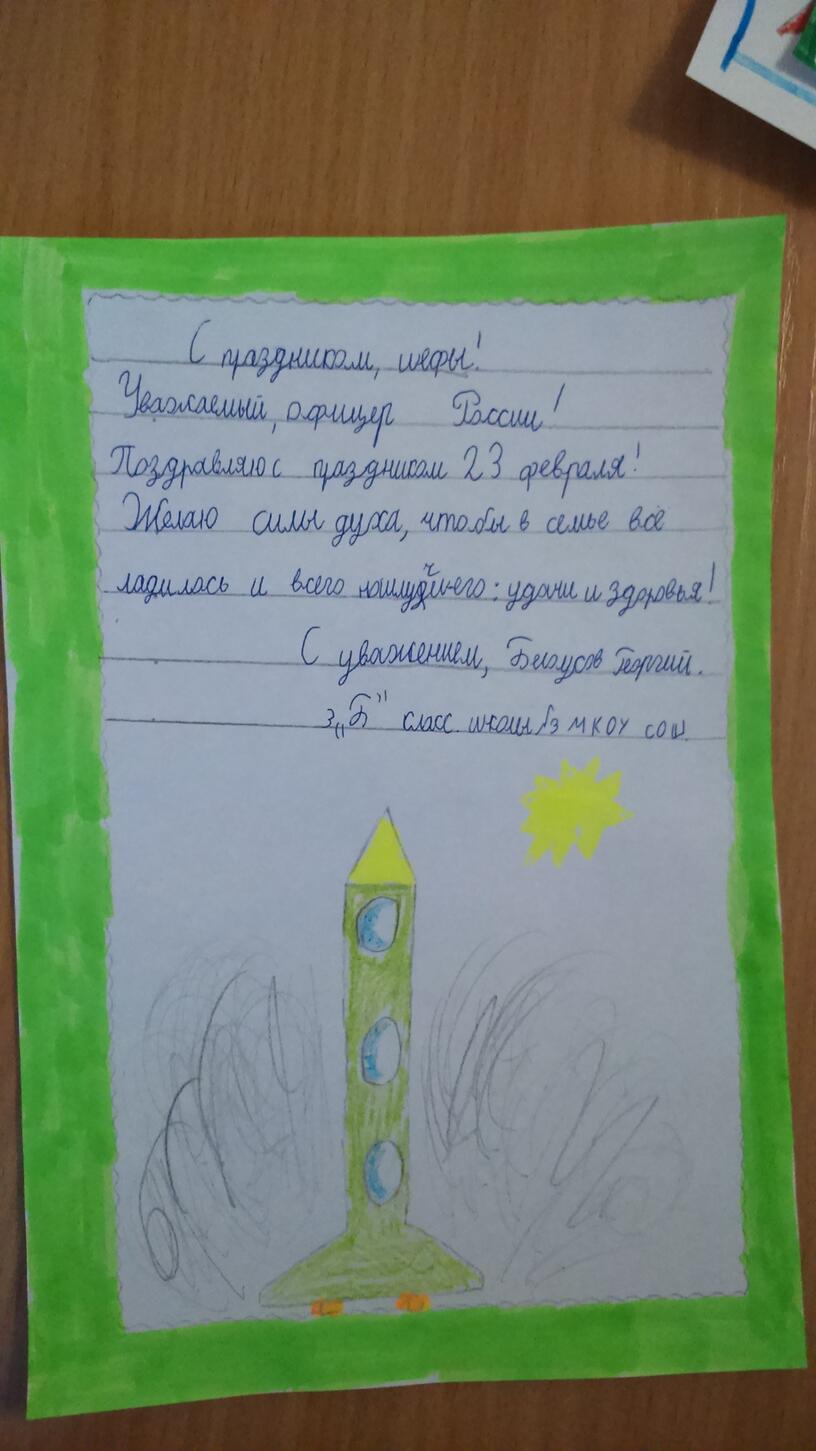 С праздником, шефы!
Уважаемый, офицер России!
Поздравляю с праздником 23 февраля!
Желаю силы духа, чтобы в семье всё
ладилось и всего наилучшего: удачи и здоровья!
С уважением, Белоусов Георгий.
3 „Б" класс школы №3 МКОУ СОШ.